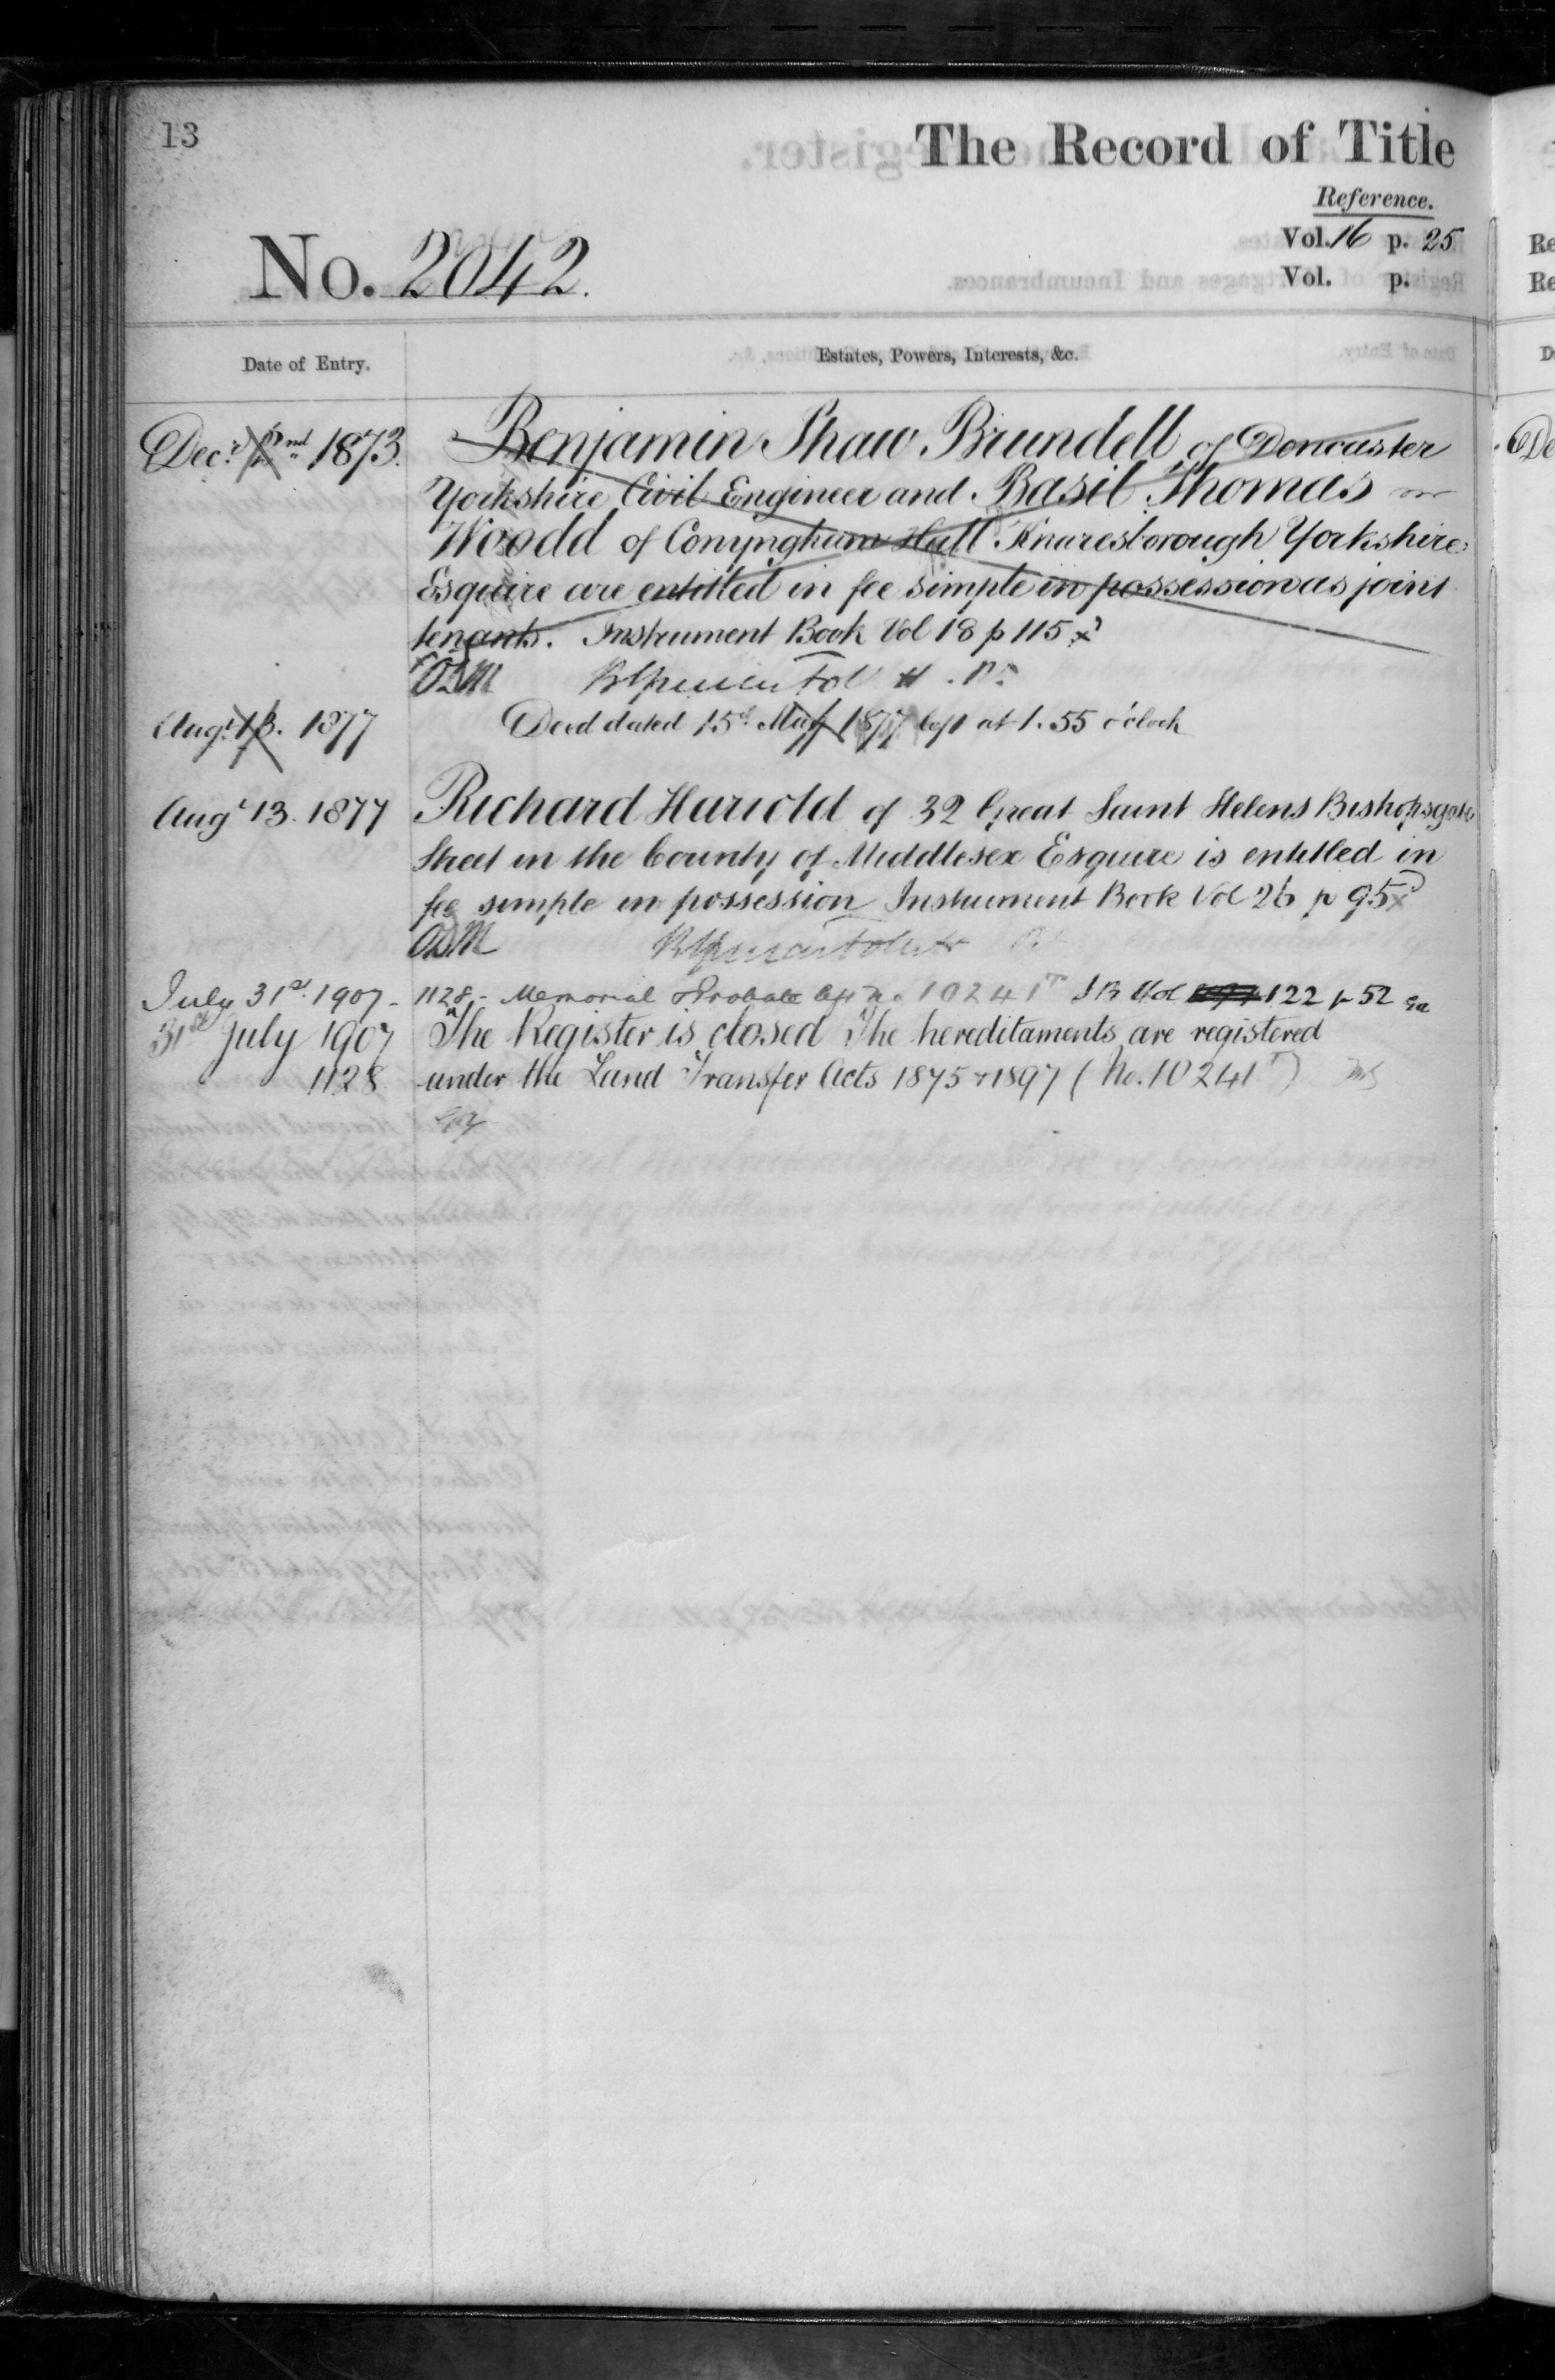 13
The Record of Title
Reference.
Vol. 16 p. 25
No. 2042.
Vol. p.
Date of Entry.
Estates, Powers, Interests, &c.
Decr. 2nd 1873.
Benjamin Shaw Brundell of Doncaster
Yorkshire Civil Engineer and Basil Thomas
Woodd of Conyngham Hall Knaresborough Yorkshire
Esquire are entitled in fee simple in possession as joint
tenants. Instrument Book Vol 18 p 115
ODM
Augt. 13. 1877
Deed dated 15th May 1877 left at 1.55 o'clock
Augt 13. 1877
Richard Harrold of 32 Great Saint Helens Bishopsgate
Street in the County of Middlesex Esquire is entitled in
fee simple in possession Instrument Book Vol 26 p 95
ODM
July 31st. 1907 -
1128. - Memorial & Probate left No 10241T I B Vol 122 p 52
31st July 1907
The Register is closed The hereditaments are registered
1128
under the Land Transfer Acts 1875 & 1897 (No. 10241T)